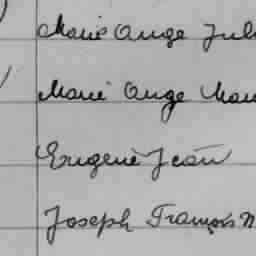 Marie Ange Juli
Marie Ange Mari
Eugène Jean
Joseph François M